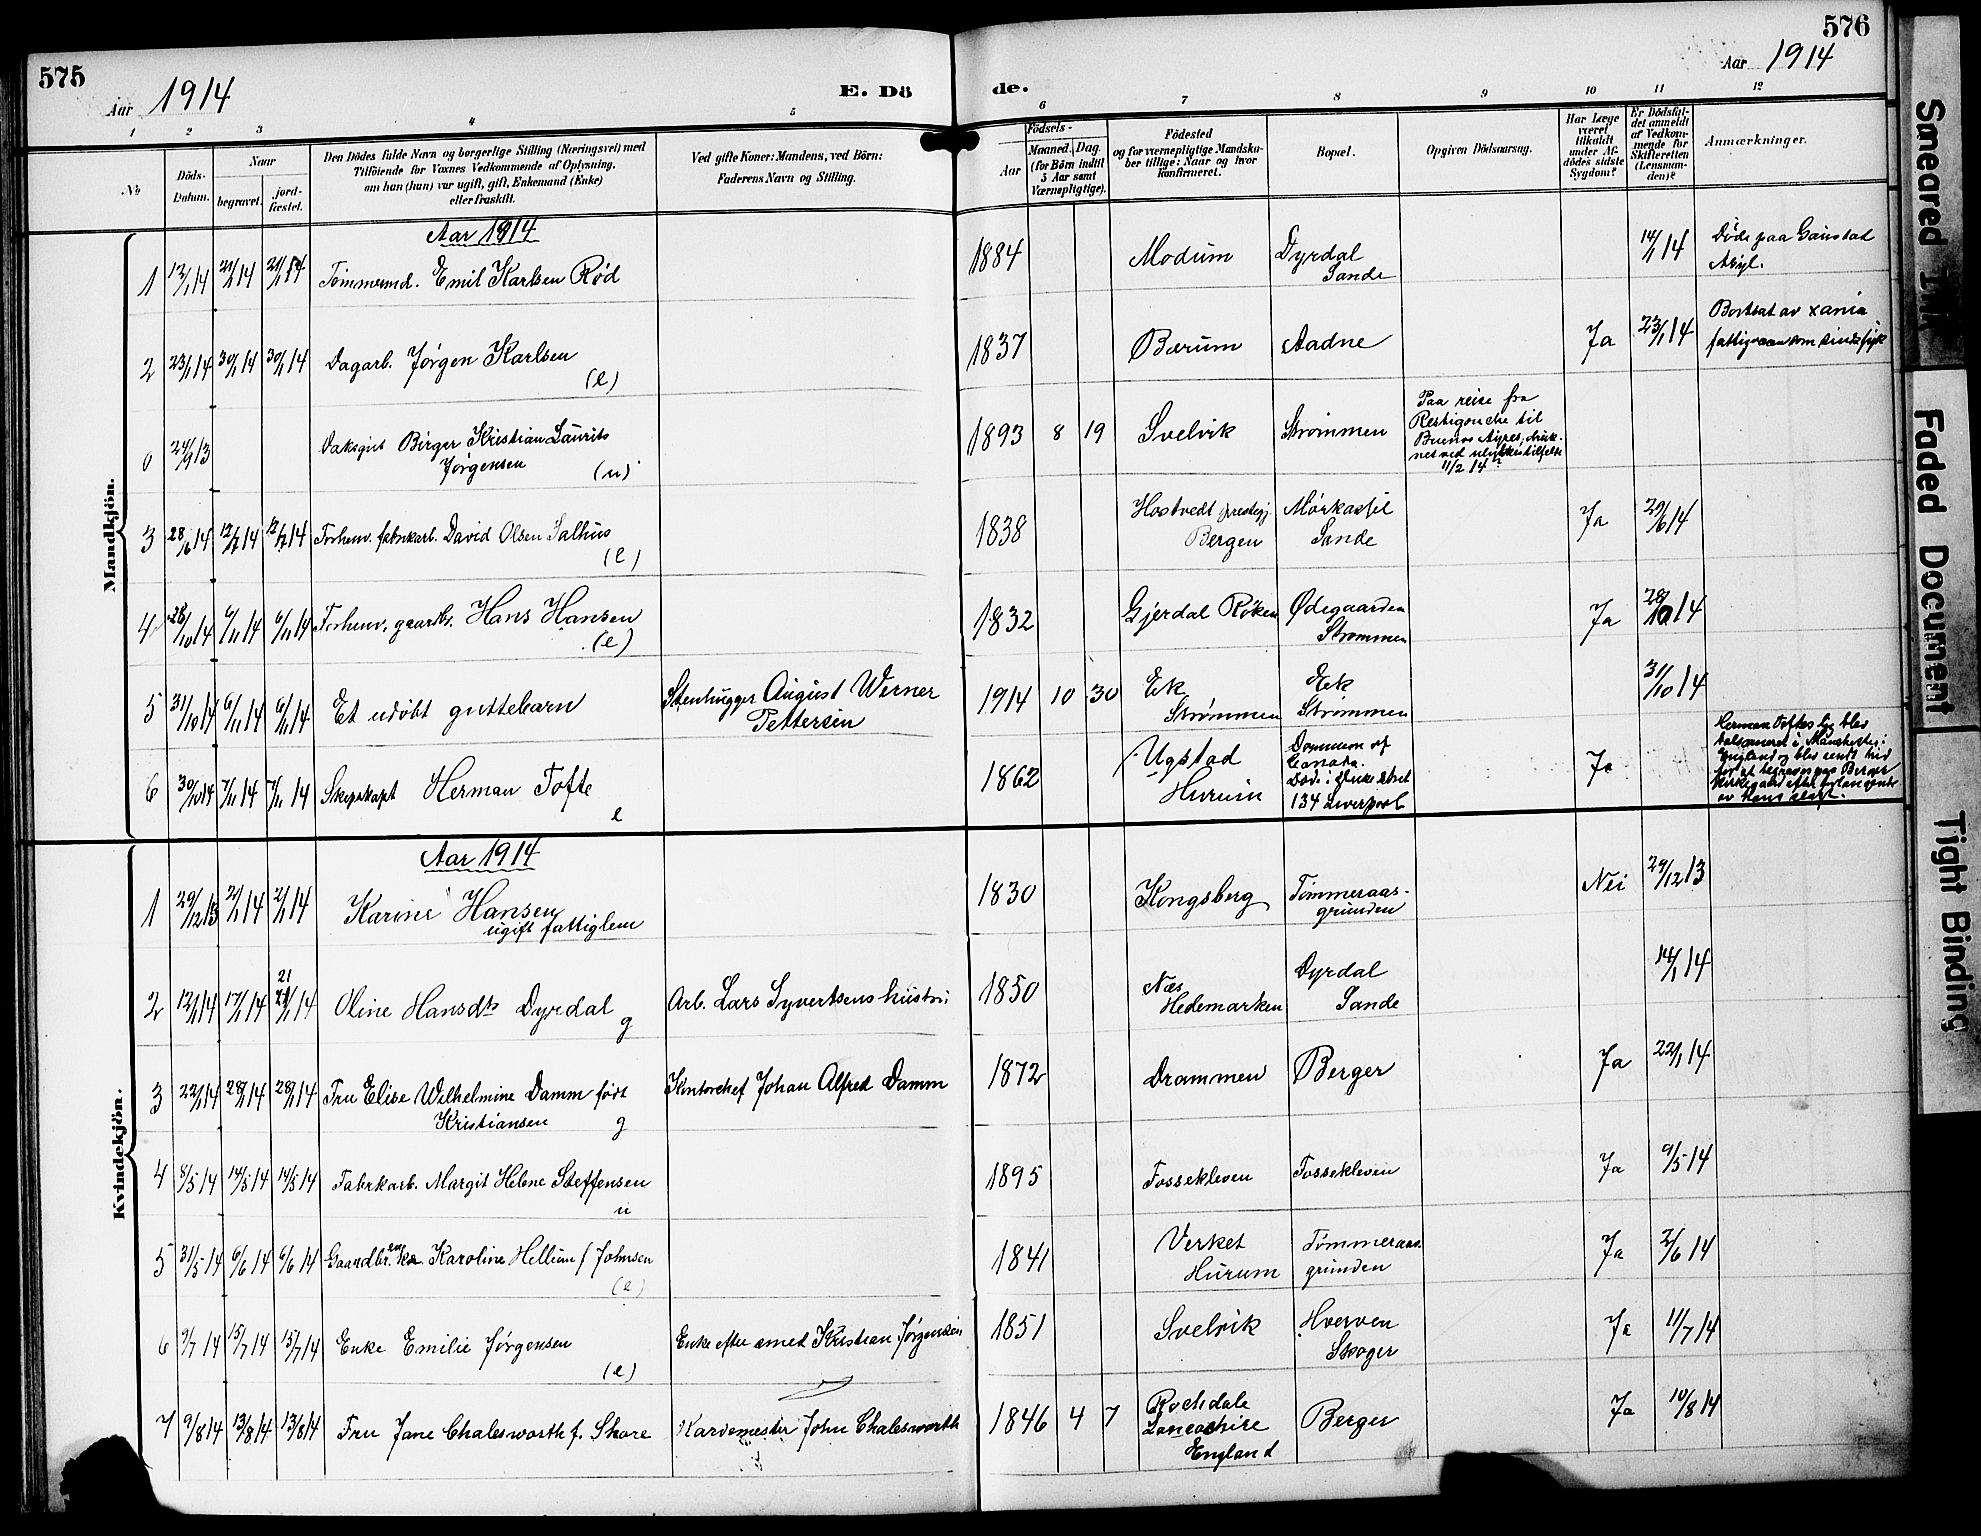 575
Aar 1914
E. Dö
de.
576
Aar 1914
1
2
3
4
5
6
7
8
9
10
11
12
No
Döds-
Datum.
Naar
begravet.
jord-
fæstet.
Den Dödes fulde Navn og borgerlige Stilling (Næringsvei) med
Tilföiende for Voxnes Vedkommende af Oplysning,
om han (hun) var ugift, gift, Enkemand (Enke)
eller fraskilt.
Ved gifte Koner: Mandens, ved Börn:
Faderens Navn og Stilling.
Födsels-
Aar
Maaned. Dag.
(for Börn indtil
5 Aar samt
Værnepligtige).
Födested
og for værnepligtige Mandska-
ber tillige: Naar og hvor
konfirmeret.
Bopæl.
Opgiven Dödsaarsag.
Har Læge
været
tilkaldt
under Af-
dödes sidste
Sygdom?
Er Dödsfal-
det anmeldt
af Vedkom-
mende for
Skifteretten
(Lensman-
den)?
Anmærkninger.
Mandkjön.
Aar 1914
1 12/1 14 21/1 14 21/1 14 Tømmermd. Emil Karlsen Rød 1884 Modum Dyrdal 14/1 14 Døde paa Gaustad
Sande Asyl.
2 23/1 14 30/1 14 30/1 14 Dagarb. Jørgen Karlsen 1837 Bærum Aadne Ja 23/1 14 Bortsat av xania
(e) fattigvæsen som sindssyk
0 24/9 13 Daksgut Birger Kristian Laurits 1893 8 19 Svelvik Strømmen Paa reise fra
Jørgensen (u) Restigouche til
Buenos Ayres, druk-
net ved ulykkestilfelde
11/2 14
3 28/6 14 12/7 14 12/7 14 Forhenv. fabrikarb. David Olsen Salhus 1838 Hostvedt prestegj. Mørkassel Ja 29/6 14
(e) Bergen Sande
4 28/10 14 6/11 14 6/11 14 Forhenv. gaardbr. Hans Hansen 1832 Gjerdal Røken Ødegaarden Ja 28/10 14
(e) Strømmen
5 31/10 14 6/11 14 6/11 14 Et udøbt guttebarn Stenhugger August Werner 1914 10 30 Ek Ek 31/10 14
Pettersen Strømmen Strømmen
6 30/10 14 7/11 14 7/11 14 Skibskapt Herman Tofte 1862 Ugstad Dominion of Ja Herman Toftes lig blev
e Hurum Canada. balsameret i Manchester i
Døde i Duke street England og blev sendt hid
134 Liverpool for at begraves paa Berger
Kirkegaard efter
av hans slegt.
Kvindekjön.
Aar 1914
1 29/12 13 2/1 14 2/1 14 Karine Hansen 1830 Kongsberg Tømmeraas- Nei 29/12 13
ugift fattiglem grunden
2 12/1 14 17/1 14 21 21/1 14 Oline Hansdtr Dyrdal Arb. Lars Syvertsens hustru 1850 Næs Dyrdal 14/1 14
g Hedemarken Sande
3 22/1 14 28/1 14 28/1 14 Fru Elise Wilhelmine Damm født Kontorchef Johan Alfred Damm 1872 Drammen Berger Ja 22/1 14
Kristiansen g
4 8/5 14 14/5 14 14/5 14 Fabrikarb. Margit Helene Steffensen 1895 Fossekleven Fossekleven Ja 9/5 14
u
5 31/5 14 6/6 14 6/6 14 Gaardbr.enke Karoline Hellum f Johnsen 1841 Verket Tømmeraas- Ja 2/6 14
(e) Hurum grunden
6 9/7 14 15/7 14 15/7 14 Enke Emilie Jørgensen Enke efter smed Kristian Jørgensen 1851 Svelvik Hverven Ja 11/7 14
(e) Skoger
7 9/8 14 13/8 14 13/8 14 Fru Jane Chalesworth f. Shore Kardemester John Chalesworth 1846 4 7 Rochdale Berger Ja 10/8 14
Lancashire
England
Smeared Ink
Faded Document
Tight Binding